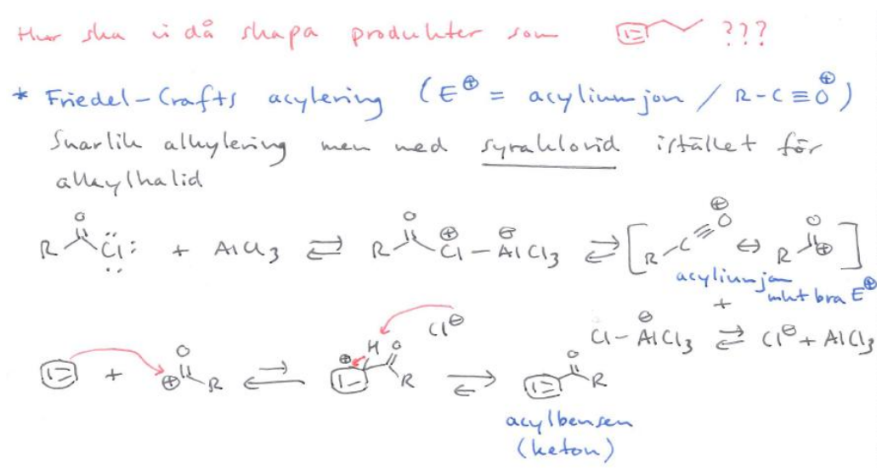 Hur ska vi då skapa produkter som ???
* Friedel-Crafts acylering (E⊕ = acyliumjon / R-C≡O⊕)
Snarlik alkylering men med syraklorid istället för
alkylhalid
R O Cl + AlCl3 ⇌ R O Cl⊕-Al⊖Cl3 ⇌ [R-C≡O⊕ ↔ R O ⊕]
acyliumjon
mkt bra E⊕
+
Cl-Al⊖Cl3 ⇌ Cl⊖ + AlCl3
+ ⊕ O R ⇌ ⊕ H O R Cl⊖ ⇌ O R
acylbensen
(keton)